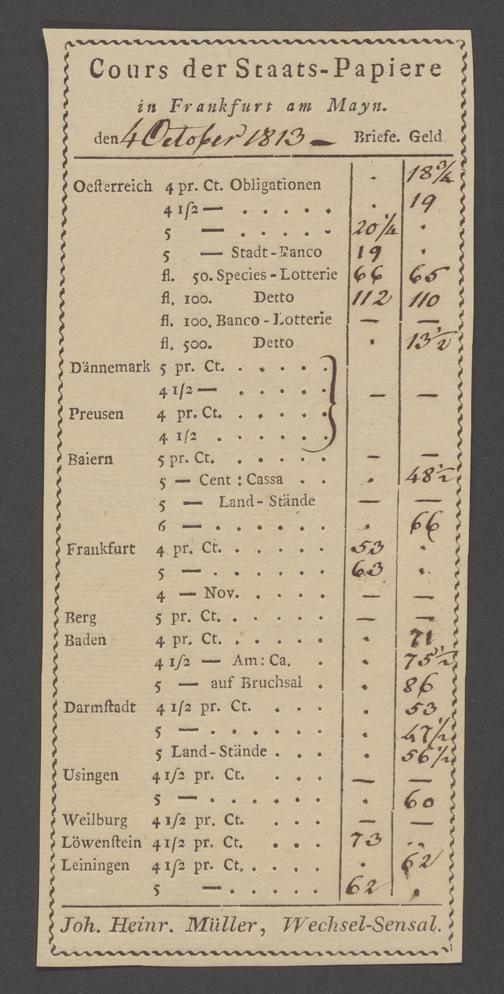 Cours der Staats-Papiere
in Frankfurt am Mayn.
den 4 October 1813 — Briefe. Geld
Oeſterreich 4 pr. Ct. Obligationen . 18 3/4
4 1/2 — . . . . . . 19
5 — . . . . . 20 1/4 .
5 — Stadt-Banco 19 .
fl. 50. Species-Lotterie 66 65
fl. 100. Detto 112 110
fl. 100. Banco-Lotterie — —
fl. 500. Detto . 13 1/2
Dännemark 5 pr. Ct. . . . . .
4 1/2 — . . . . . — —
Preusen 4 pr. Ct. . . . . .
4 1/2 . . . . . .
Baiern 5 pr. Ct. . . . . . — —
5 — Cent : Cassa . . . 48 1/2
5 — Land-Stände — —
6 — . . . . . . . 66
Frankfurt 4 pr. Ct. . . . . . 53 .
5 — . . . . . . 63 .
4 — Nov. . . . . — —
Berg 5 pr. Ct. . . . . . — —
Baden 4 pr. Ct. . . . . . . 71
4 1/2 — Am: Ca. . . 75 1/2
5 — auf Bruchsal . . 86
Darmſtadt 4 1/2 pr. Ct. . . . . 53
5 — . . . . . . . 47 1/2
5 Land-Stände . . . . 56 1/2
Usingen 4 1/2 pr. Ct. . . . — —
5 — . . . . . . . 60
Weilburg 4 1/2 pr. Ct. . . . — —
Löwenſtein 4 1/2 pr. Ct. . . . 73 . .
Leiningen 4 1/2 pr. Ct. . . . . . 62
5 — . . . . . 62 .
Joh. Heinr. Müller, Wechsel-Sensal.